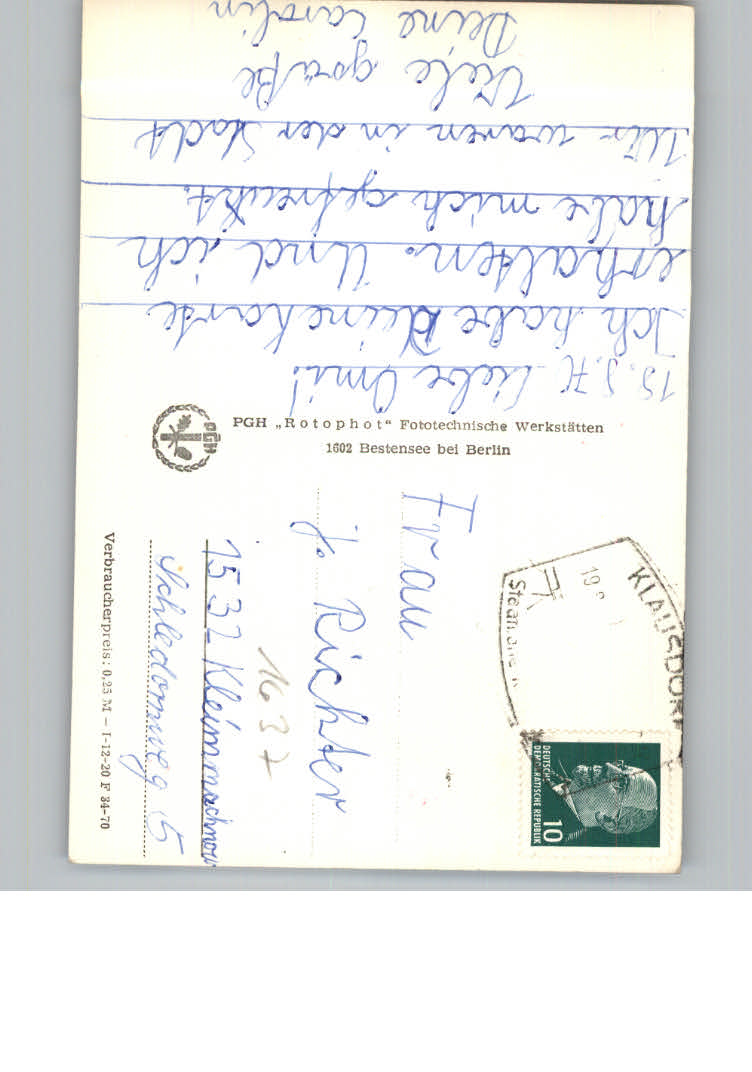 Liebe Omi!
Ich habe Deine Karte
erhalten. Und ich
habe mich gefreut.
Wir waren in der Stadt
Viele grüße
Deine Carolin
PGH
PGH „Rotophot“ Fototechnische Werkstätten
1602 Bestensee bei Berlin
Frau
J. Richter
1532 Kleinmachnow
1637
Schledornweg 15
Verbraucherpreis: 0,25 M – I-12-20 F 34-70
KLAUSDORF
DEUTSCHE
DEMOKRATISCHE REPUBLIK
10